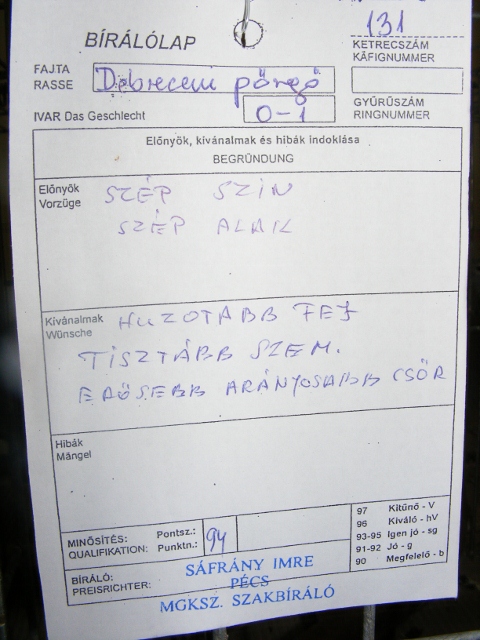 131
BÍRÁLÓLAP
KETRECSZÁM
KÄFIGNUMMER
FAJTA
RASSE
Debreceni pörgő
IVAR Das Geschlecht
0-1
GYŰRŰSZÁM
RINGNUMMER
Előnyök, kívánalmak és hibák indoklása
BEGRÜNDUNG
Előnyök
Vorzüge
SZÉP SZIN
SZÉP ALAK
Kívánalmak
Wünsche
HUZOTABB FEJ
TISZTÁBB SZEM.
ERŐSEBB ARÁNYOSABB CSŐR
Hibák
Mängel
MINŐSÍTÉS: Pontsz.:
QUALIFIKATION: Punktn.:
94
97 Kitűnő - V
96 Kiváló - hV
93-95 Igen jó - sg
91-92 Jó - g
90 Megfelelő - b
BÍRÁLÓ:
PREISRICHTER:
SÁFRÁNY IMRE
PÉCS
MGKSZ. SZAKBÍRÁLÓ